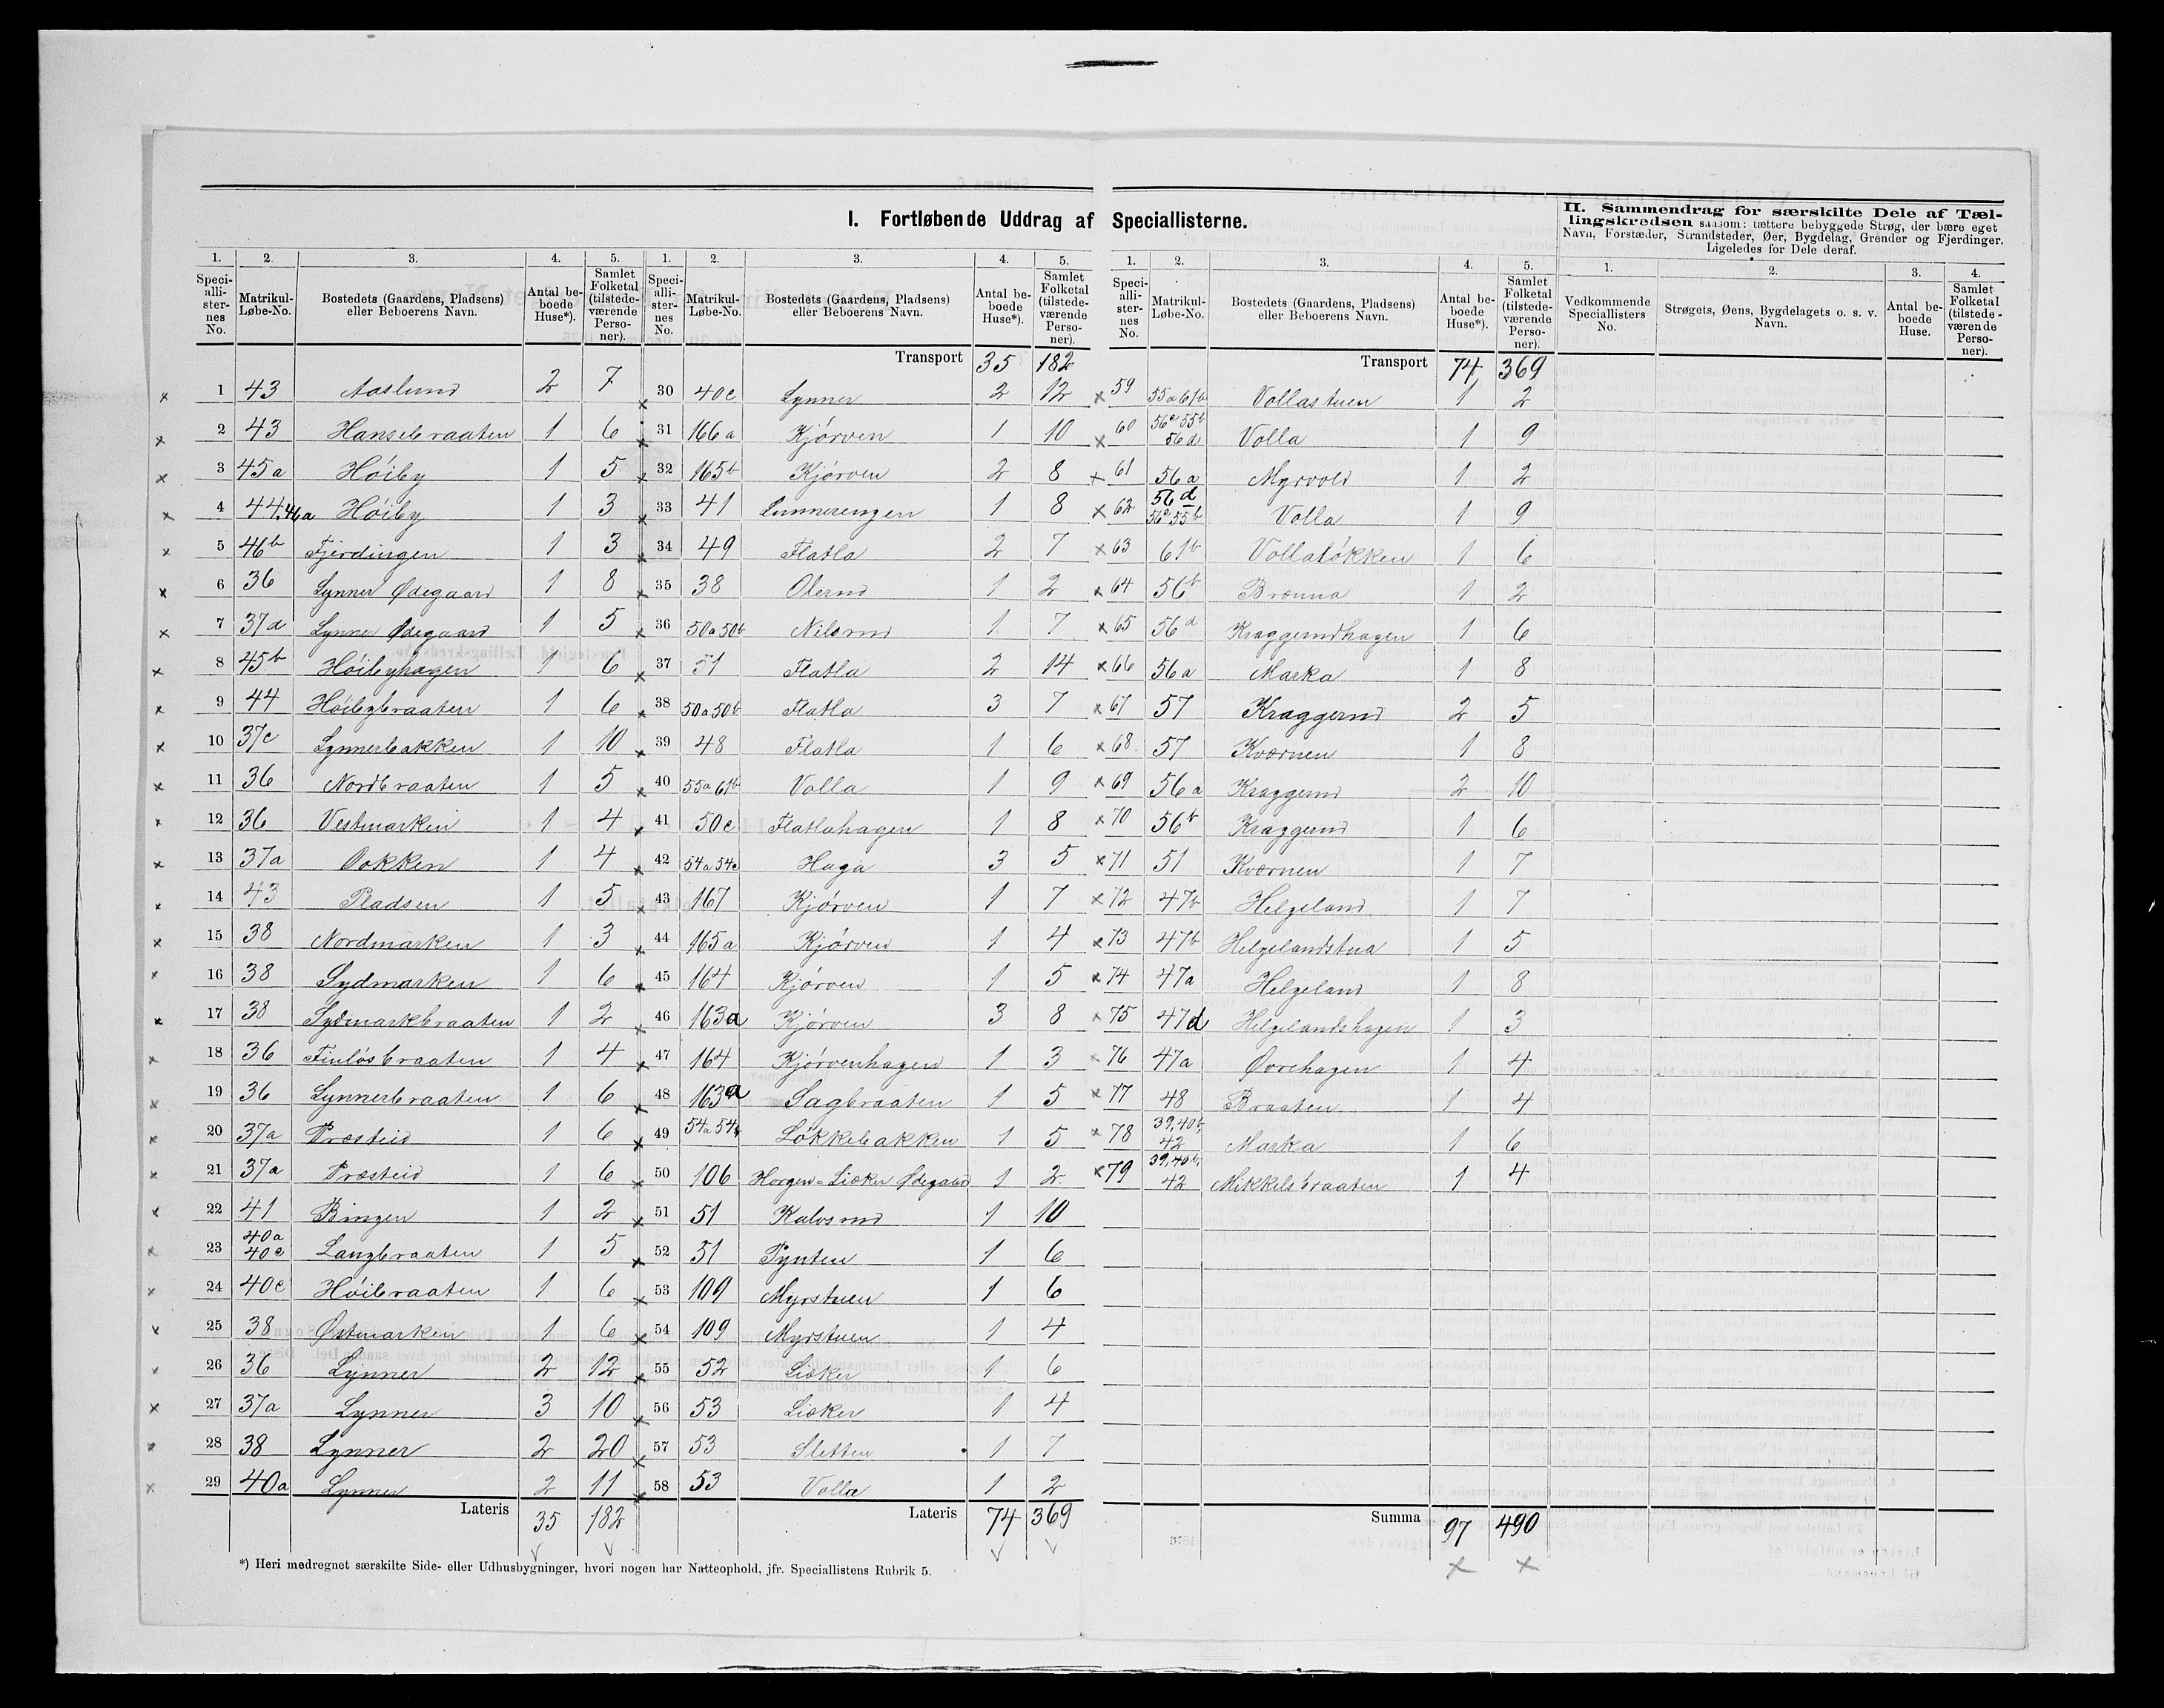 I. Fortløbende Uddrag af Speciallisterne.
II. Sammendrag for særskilte Dele af Tællingskredsen saasom: tættere bebyggede Strøg, der bære eget Navn, Forstæder, Strandsteder, Øer, Bygdelag, Grender og Fjerdinger. Ligeledes for Dele deraf.
1. 2. 3. 4. 5. 1. 2. 3. 4. 5. 1. 2. 3. 4. 5. 1. 2. 3. 4.
Speciallisternes No. Matrikul-Løbe-No. Bostedets (Gaardens, Pladsens) eller Beboerens Navn. Antal beboede Huse*). Samlet Folketal (tilstedeværende Personer).
Speciallisternes No. Matrikul-Løbe-No. Bostedets (Gaardens, Pladsens) eller Beboerens Navn. Antal beboede Huse*). Samlet Folketal (tilstedeværende Personer).
Speciallisternes No. Matrikul-Løbe-No. Bostedets (Gaardens, Pladsens) eller Beboerens Navn. Antal beboede Huse*). Samlet Folketal (tilstedeværende Personer).
Vedkommende Speciallisters No. Strøgets, Øens, Bygdelagets o. s. v. Navn. Antal beboede Huse. Samlet Folketal (tilstedeværende Personer).
1 43 Aaslund 2 7
2 43 Hansebraaten 1 6
3 45a Høiby 1 5
4 44.46a Høiby 1 3
5 46b Fjerdingen 1 3
6 36 Lynner Ødegaard 1 8
7 37d Lynner Ødegaard 1 5
8 45b Høibyhagen 1 6
9 44 Høibybraaten 1 6
10 37c Lynnerbakken 1 10
11 36 Nordbraaten 1 5
12 36 Vestmarken 1 4
13 37a Dokken 1 4
14 43 Pladsen 1 5
15 38 Nordmarken 1 3
16 38 Sydmarken 1 6
17 38 Sydmarkbraaten 1 2
18 36 Finløsbraaten 1 4
19 36 Lynnerbraaten 1 6
20 37a Præsteid 1 6
21 37a Præsteid 1 6
22 41 Bingen 1 2
23 40a 40e Langbraaten 1 5
24 40c Høibraaten 1 6
25 38 Østmarken 1 6
26 36 Lynner 2 12
27 37a Lynner 3 10
28 38 Lynner 2 20
29 40a Lynner 2 11
Lateris 35 182
Transport 35 182
30 40c Lynner 2 12
31 166a Kjørven 1 10
32 165b Kjørven 2 8
33 41 Lunnerengen 1 8
34 49 Flatla 2 7
35 38 Olerud 1 2
36 50a 50b Nilsrud 1 7
37 51 Flatla 2 14
38 50a 50b Flatla 3 7
39 48 Flatla 1 6
40 55a 61b Volla 1 9
41 50c Flatlahagen 1 8
42 54a 54c Haga 3 5
43 167 Kjørven 1 7
44 165a Kjørven 1 4
45 164 Kjørven 1 5
46 163a Kjørven 3 8
47 164 Kjørvenhagen 1 3
48 163a Sagbraaten 1 5
49 54a 54b Løkkebakken 1 5
50 106 Horgen-Lieker Ødegaard 1 2
51 51 Kalvsrud 1 10
52 51 Pynten 1 6
53 109 Myrstuen 1 6
54 109 Myrstuen 1 4
55 52 Lieker 1 6
56 53 Lieker 1 4
57 53 Sletten 1 7
58 53 Volla 1 2
Lateris 74 369
Transport 74 369
59 55a 61b Vollastuen 1 2
60 56c 55b 56d Volla 1 9
61 56a Myrvold 1 2
62 56d 56c 55b Volla 1 9
63 61b Volla​løkken 1 6
64 56b Brænna 1 2
65 56d Kraggerudhagen 1 6
66 56a Marka 1 8
67 57 Kraggerud 2 5
68 57 Kværnen 1 8
69 56a Kraggerud 2 10
70 56b Kraggerud 1 6
71 51 Kværnen 1 7
72 47b Helgeland 1 7
73 47b Helgelandstua 1 5
74 47a Helgeland 1 8
75 47d Helgelandshagen 1 3
76 47a Øvrehagen 1 4
77 48 Braaten 1 4
78 39, 40b, 42 Marka 1 6
79 39, 40b, 42 Mikkelsbraaten 1 4
Summa 97 490
*) Heri medregnet særskilte Side- eller Udhusbygninger, hvori nogen har Natteophold, jfr. Speciallistens Rubrik 5.